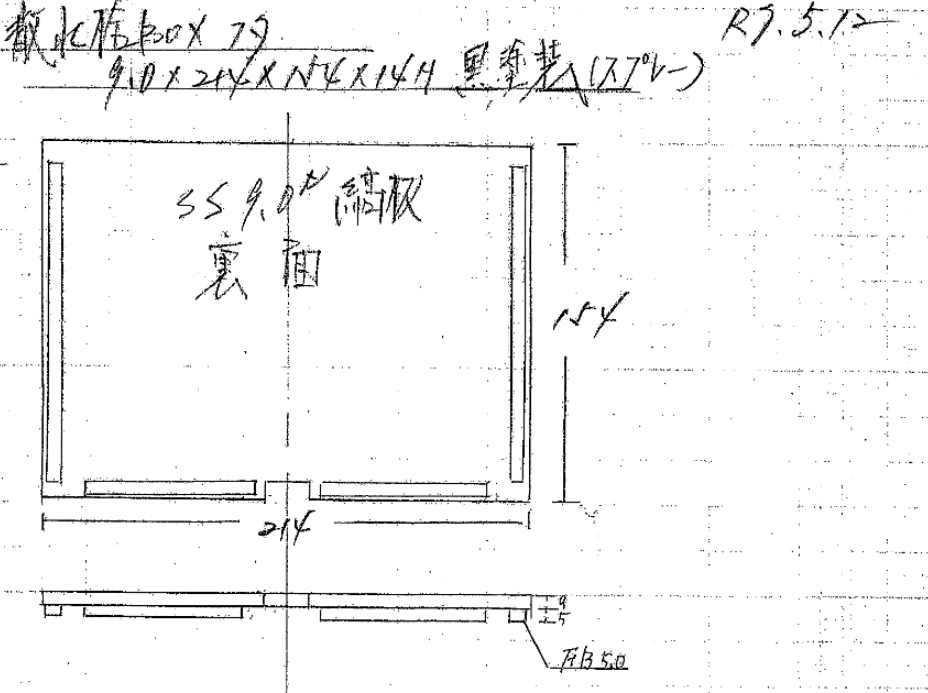 散水栓BOX フタ
9.0×214×154×14H 黒塗装(スプレー)
R7.5.12
SS 9.0t 縞板
裏面
154
214
9
5
FB 5.0